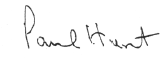 Paul Hunt